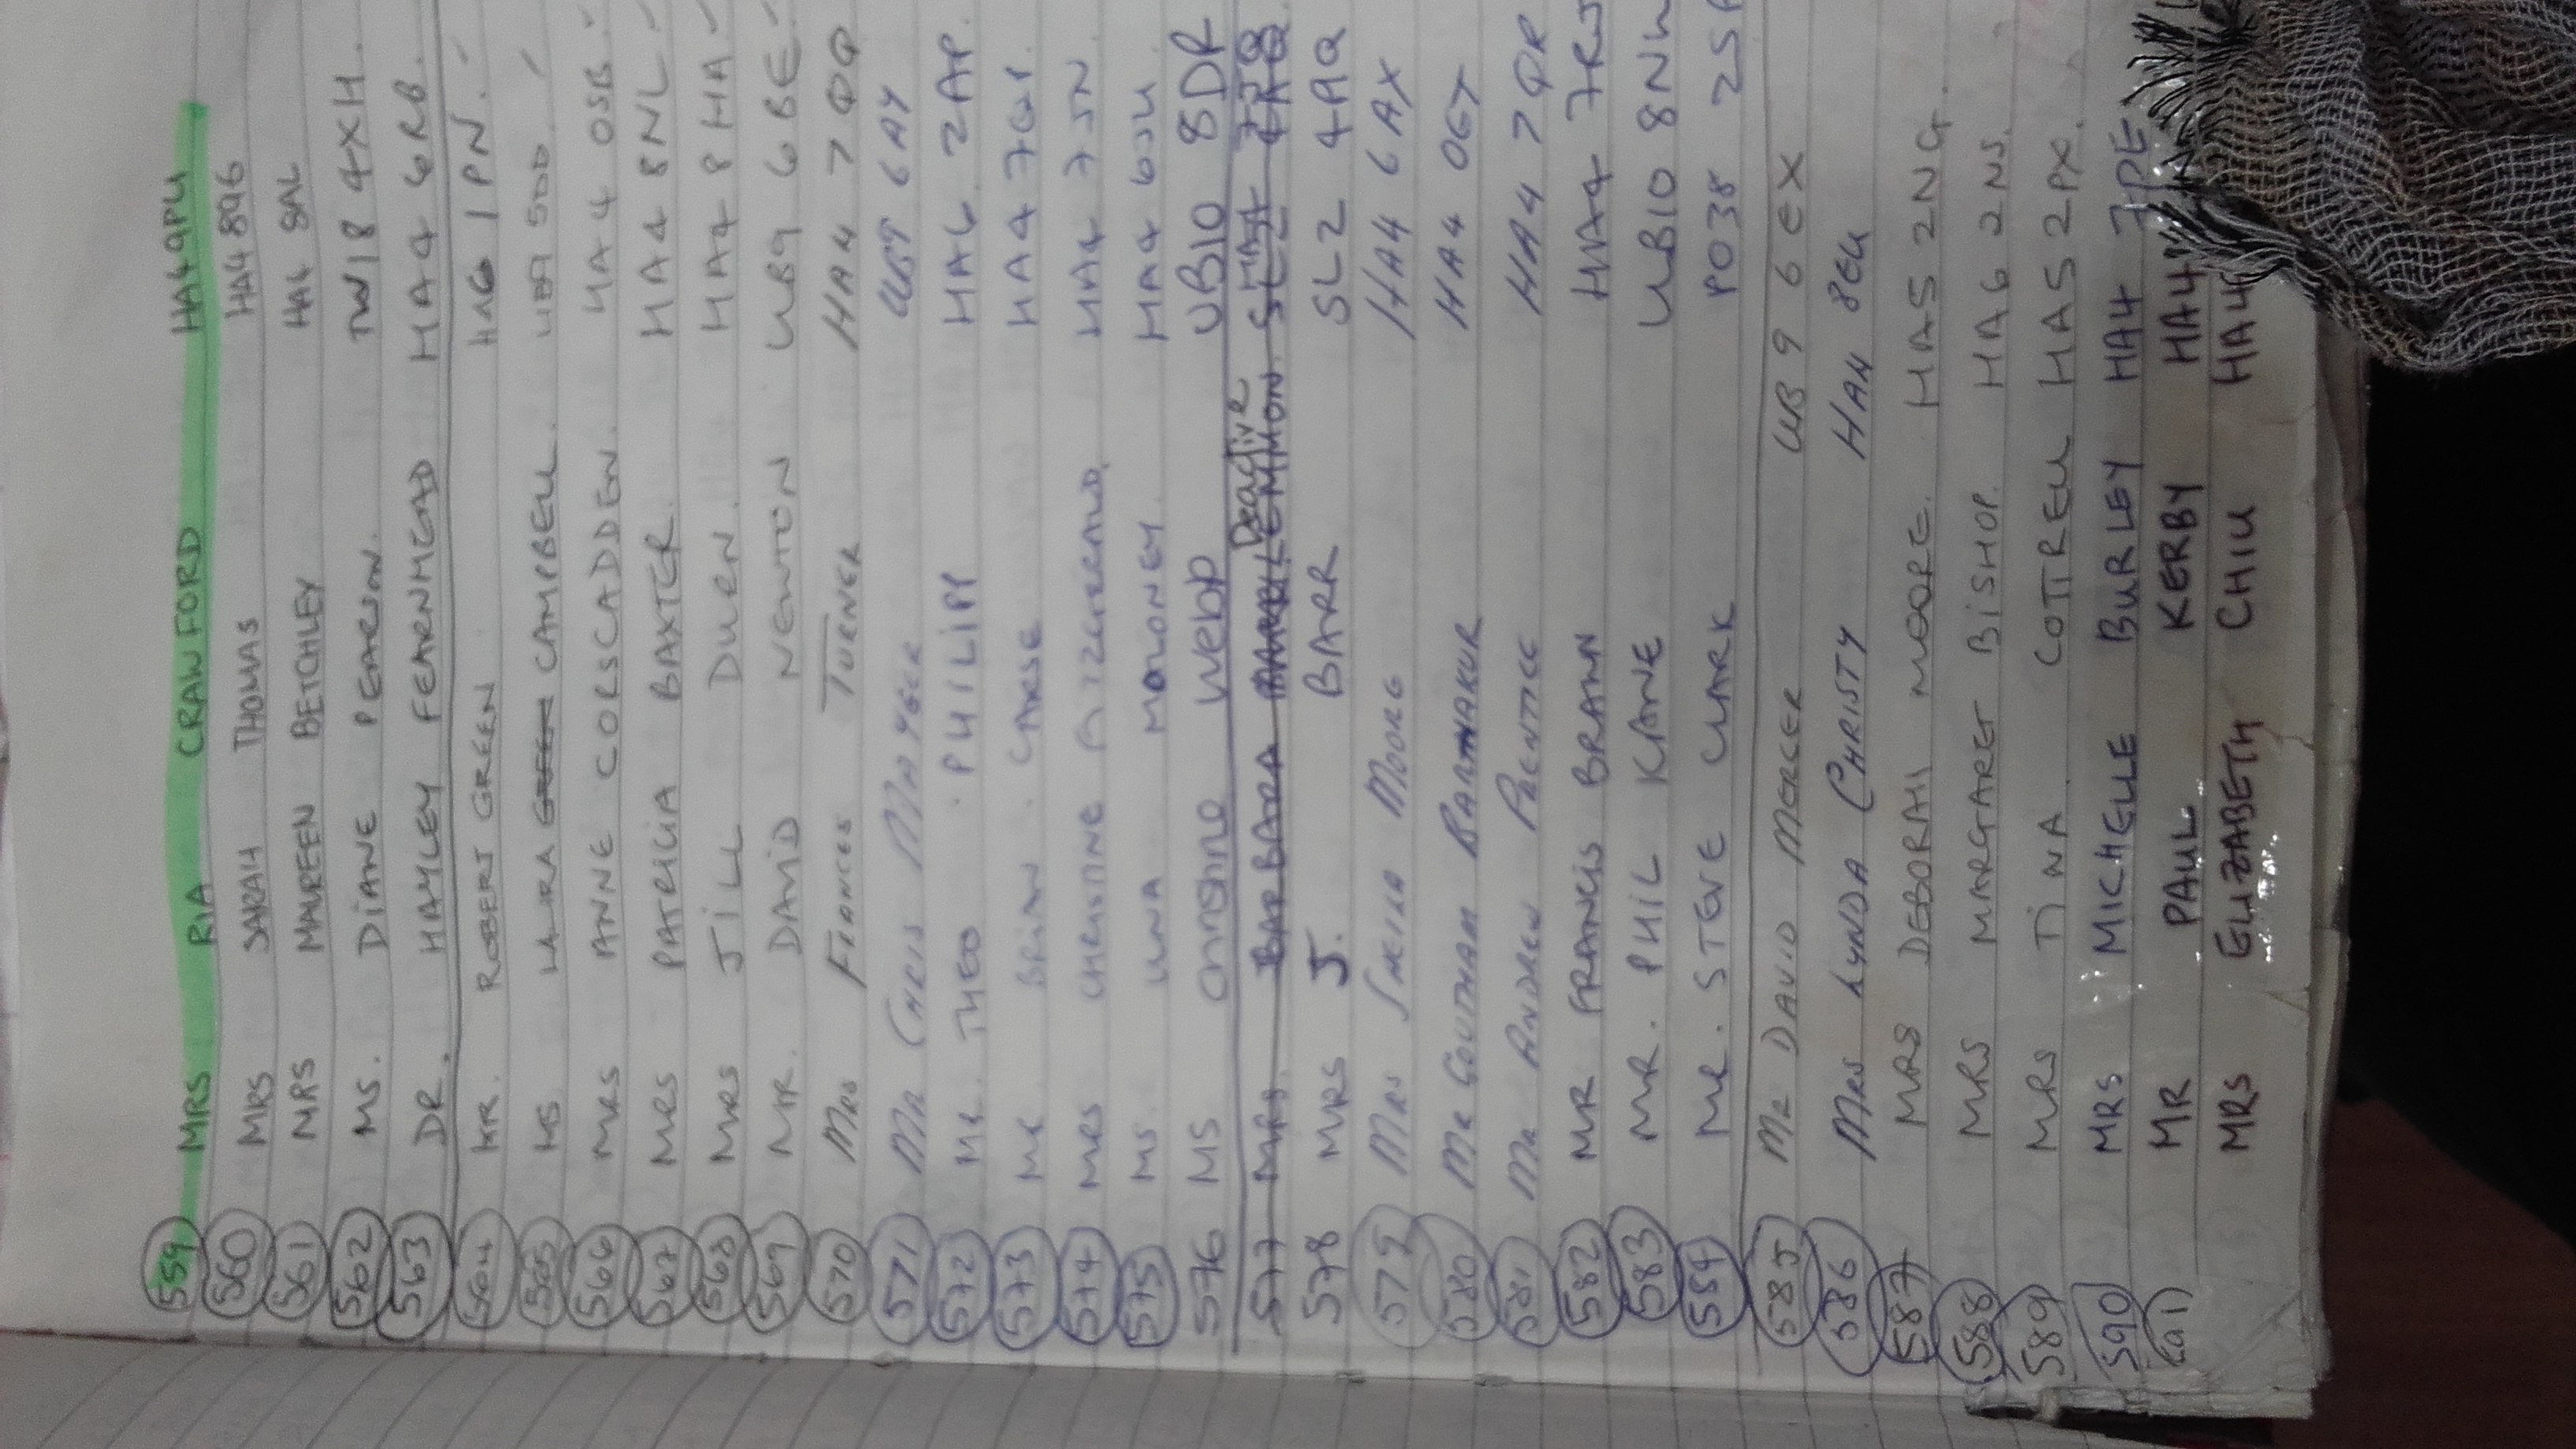 559 MRS RIA CRAWFORD HA4 9PU
560 MRS SARAH THOMAS HA4 896
561 MRS MAUREEN BETCHLEY HA4 8AL
562 MS. DIANE PEARSON. TW18 4XH.
563 DR. HAYLEY FEARNHEAD HA4 6RB.
564 MR. ROBERT GREEN HA6 1PN.
565 MS LAURA GREEN CAMPBELL. UB9 5DD
566 MRS ANNE CORSCADDEN. HA4 0SB
567 MRS PATRICIA BAXTER. HA4 8NL
568 MRS JILL DURN. HA4 8HA
569 MR. DAVID NEWTON UB9 6BE
570 MRS FRANCES TURNER HA4 7QQ
571 MR CHRIS MAYGER UB9 6AY
572 MR. THEO PHILIPP HA6 2AP.
573 MR BRIAN CARSE HA4 7QP.
574 MRS CHRISTINE FITZGERALD. HA4 7SN
575 MS. UNA MOLONEY. HA4 6JU.
576 MS Christine Webb UB10 8DR
Deactive HA4
577 MRS. BARBARA LEMMON. SL2
578 MRS J. BARR SL2 4AQ
579 MRS SHEILA MOORE HA4 6AX
580 MR GOUTHAM BARTHAKUR HA4 0GT
581 MR ANDREW PRENTICE HA4 7QR
582 MR FRANCIS BRAWN HA4
583 MR. PHIL KANE UB10
584 MR. STEVE CLARK PO38
585 MR DAVID MERCER UB9 6EX
586 MRS LYNDA CHRISTY HA4 8EU
587 MRS DEBORAH MOORE. HA5 2NG.
588 MRS MARGARET BISHOP. HA6 2NS.
589 MRS TINA COTTRELL HA5 2PX.
590 MRS MICHELLE BURLEY HA4 7PE
MR PAUL KERBY HA4
MRS ELIZABETH CHIU HA4